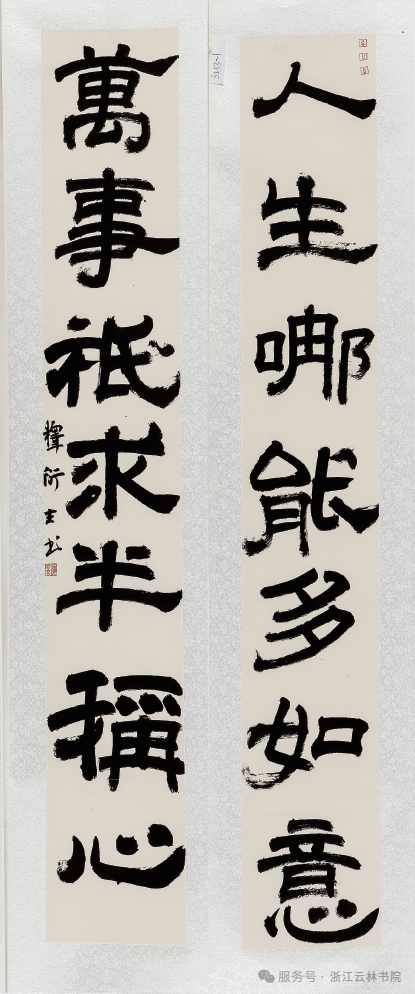 人生哪能多如意
萬事祇求半稱心
服务号 · 浙江云林书院